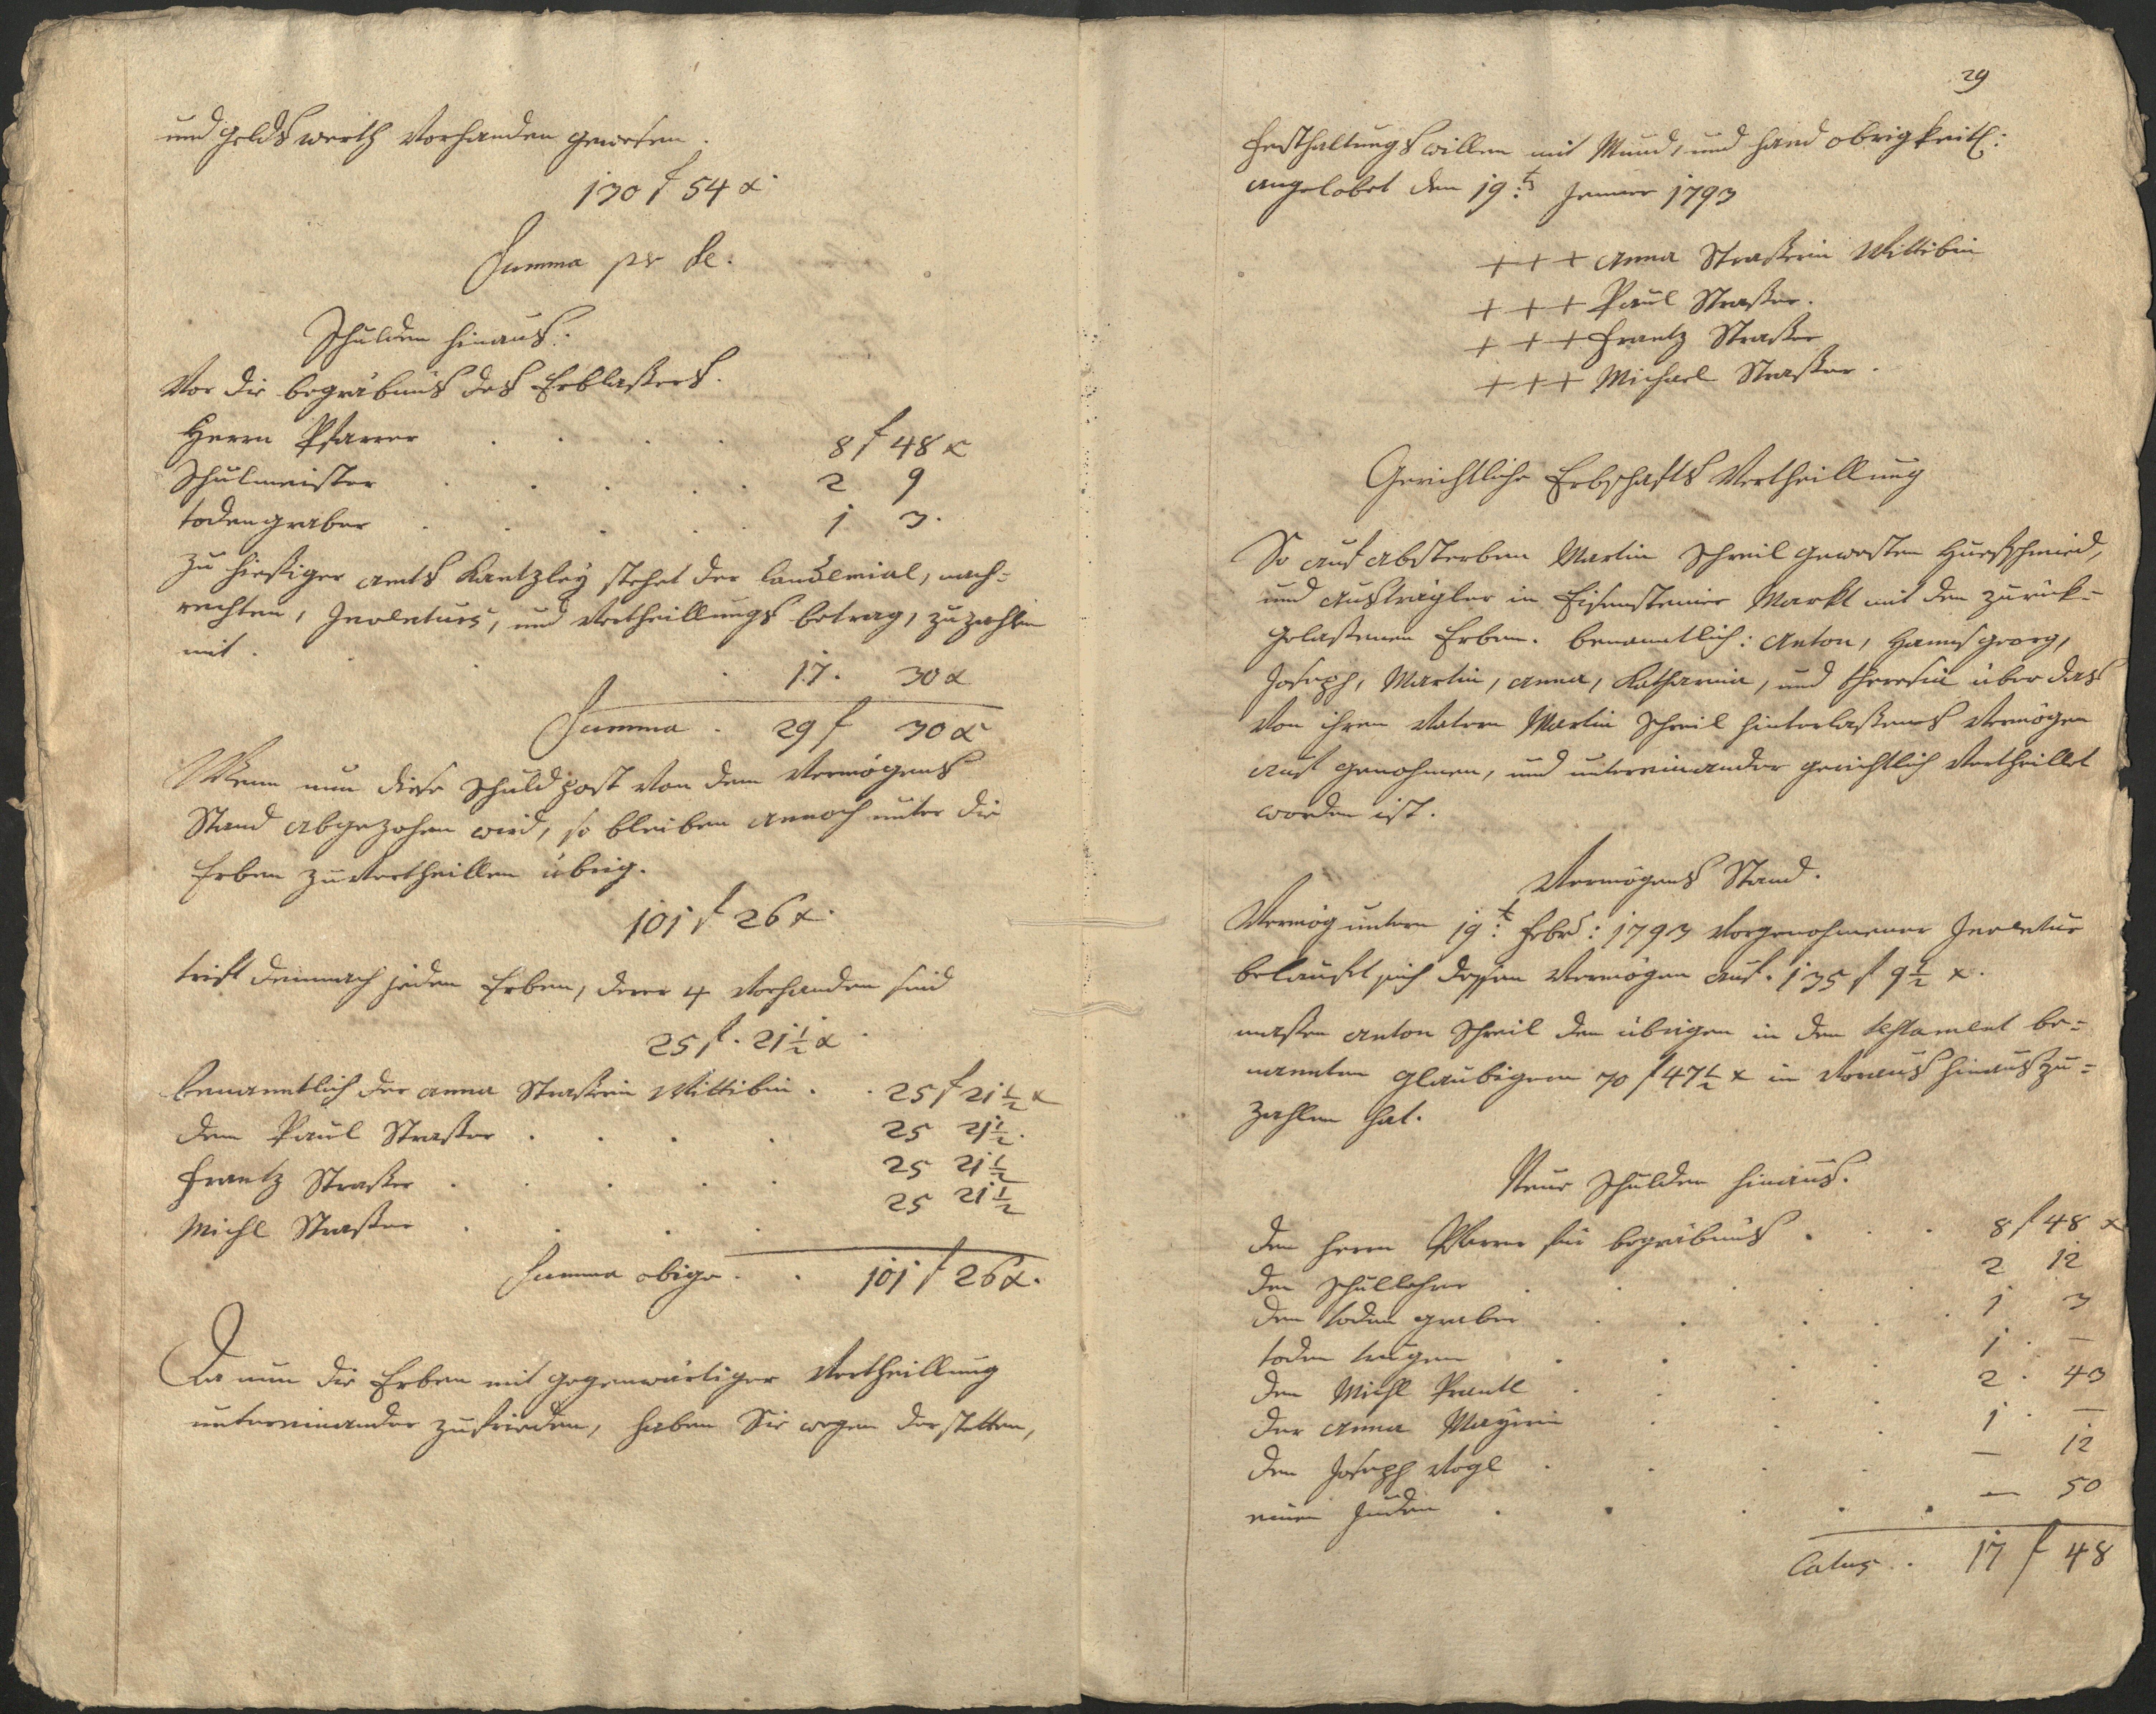 und gelds werth vorhanden gewesen.
130 f 54 x.
Summa per se.
Schulden hinaus.
Vor die begräbnus des Erblaßers.
Herrn Pfarrer . . . . 8 f 48 x
Schulmeister . . . . . 2 9
todengraber . . . . . 1 3.
zu hießiger amts Kantzley stehet der laudemial, nach=
rechten, Inventurs, und Vertheillungs betrag, zu zahlen
mit . . . . 17. 30 x
Summa . 29 f 30 x
Wenn nun diese schuldpost von dem Vermögens
Stand abgezohen wird, so bleiben annoch unter die
Erben zu vertheillen übrig.
101 f 26 x.
trift demnach jeden Erben, derer 4 vorhanden sind
25 f. 21 1/2 x.
benanntlich der anna Straßerin Wittibin . . 25 f 21 1/2 x
dem Paul Straßer . . . . 25 21 1/2.
Frantz Straßer . . . . 25 21 1/2
Michl Straßer . . . . 25 21 1/2
Summa obige . . 101 f 26 x.
Da nun die Erben mit gegenwärtiger Vertheillung
untereinander zufrieden, haben Sie wegen der stetten,
29
Festhaltungs willen mit Mund, und hand obrigkeitl:
angelobet den 19t: Jenner 1793
+++ Anna Straßerin Wittibin
+++ Paul Straßer.
+++ Frantz Straßer
+++ Michael Straßer.
Gerichtliche Erbschafts Vertheillung
So auf absterben Martin Schreil gewesten Huefschmied,
und austrägler in Eisensteiner Markt mit den zurück=
gelaßenen Erben. benanntlich: Anton, Hannsgeorg,
Joseph, Martin, Anna, Katharina, und theresia über das
von ihrem Vatern Martin Schreil hinterlaßenes Vermögen
auf genohmen, und untereinander gerichtlich Vertheillet
worden ist.
Vermögens Stand.
Vermög untern 19t: Febr: 1793 vorgenohmener Inventur
belauft sich dessen Vermögen auf. 135 f 9 1/2 x.
maßen Anton Schreil den übrigen in dem testament be=
nannten glaubigern 70 f 47 1/2 x in Voraus hinauszu=
zahlen hat.
Neue schulden hinaus.
den herrn Pfarrer für begräbnus . . . 8 f 48 x
den schullehrer . . . . 2 12
den toden graber . . . . 1 3
toden tragern . . . . 1 . —
den Michl Prantl . . . . 2 . 43
der Anna Mayrin . . . 1 . —
den Joseph Vogl . . . . — 12
einen Juden . . . . . — 50
Latus . . 17 f 48